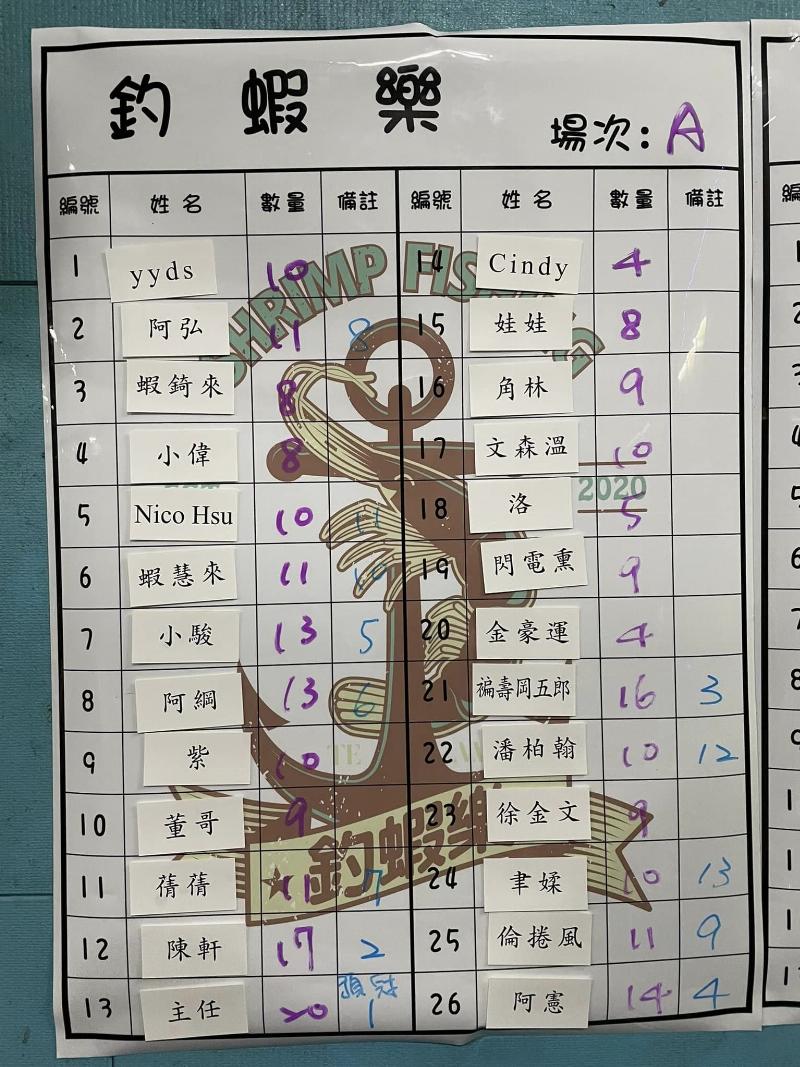 釣蝦樂
場次:A
編號 姓名 數量 備註 編號 姓名 數量 備註
1 yyds 10 14 Cindy 4
2 阿弘 11 8 15 娃娃 8
3 蝦錡來 8 16 角林 9
4 小偉 8 17 文森溫 10
5 Nico Hsu 10 11 18 洛 5
6 蝦慧來 11 10 19 閃電熏 9
7 小駿 13 5 20 金豪運 4
8 阿綱 13 6 21 褔壽岡五郎 16 3
9 紫 10 22 潘柏翰 10 12
10 董哥 9 23 徐金文 9
11 蒨蒨 11 7 24 聿媃 10 13
12 陳軒 17 2 25 倫捲風 11 9
13 主任 20 1 26 阿憲 14 4
SHRIMP
2020
釣蝦樂